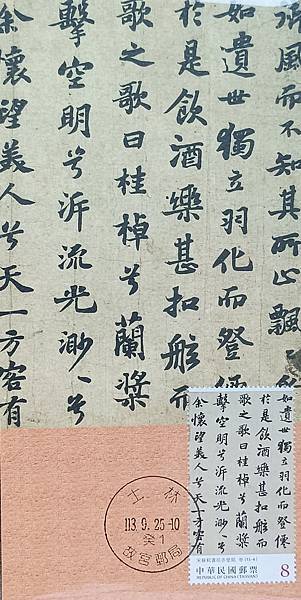 風而不知其所止飄
如遺世獨立羽化而登僊
於是飲酒樂甚扣舷而
歌之歌曰桂棹兮蘭槳
擊空明兮泝流光渺〻兮
余懷望美人兮天一方客有
士林
113.9.25-10
癸1
故宮郵局
如遺世獨立羽化而登僊
於是飲酒樂甚扣舷而
歌之歌曰桂棹兮蘭槳
擊空明兮泝流光渺〻兮
余懷望美人兮天一方客有
宋蘇軾書前赤壁賦
中華民國郵票
REPUBLIC OF CHINA (TAIWAN)
8